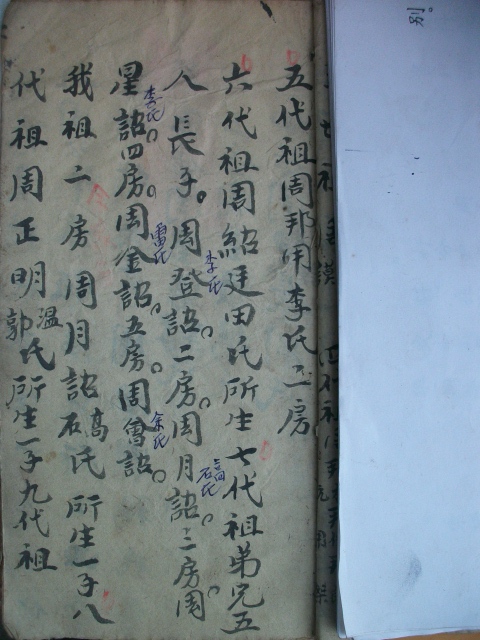 别。
五代祖周邦用李氏二房
六代祖周紹廷田氏所生七代祖弟兄五
人長子。周登詔。二房。周月詔。三房周
李氏
高石氏
星詔。四房。周金詔。五房。周會詔。
李氏
雷氏
余氏
我祖二房周月詔石高氏所生一子八
代祖周正明郭溫氏所生一子九代祖